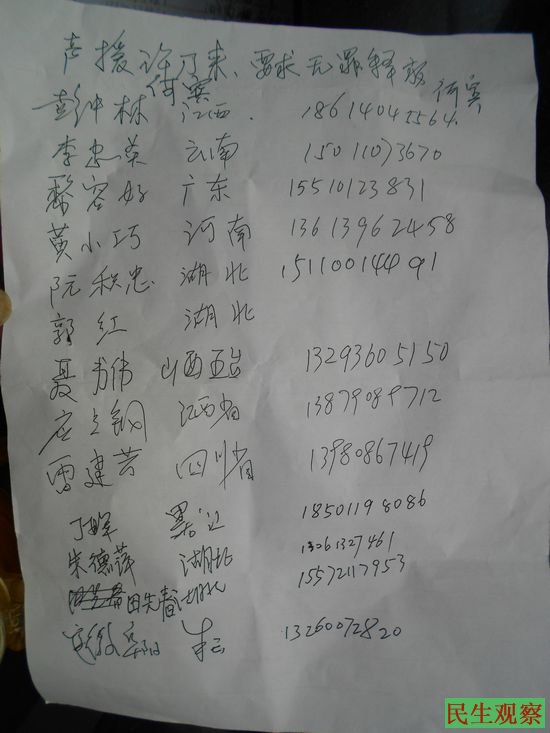 声援许乃来、要求无罪释放
何宾 何宾
彭仲林 江西. 18614041564.
李忠英 云南 15011073670
黎容好 广东 15510123831
黄小巧 河南 13613962458
阮积忠 湖北 15110014491
郭红 湖北
聂书伟 山西 13293605150
江西省 13879089712
雷建芳 四川省 13980867419
丁 18501198086
朱德萍 湖北 13061327461
田先春 湖北 15572117953
13260072820
民生观察